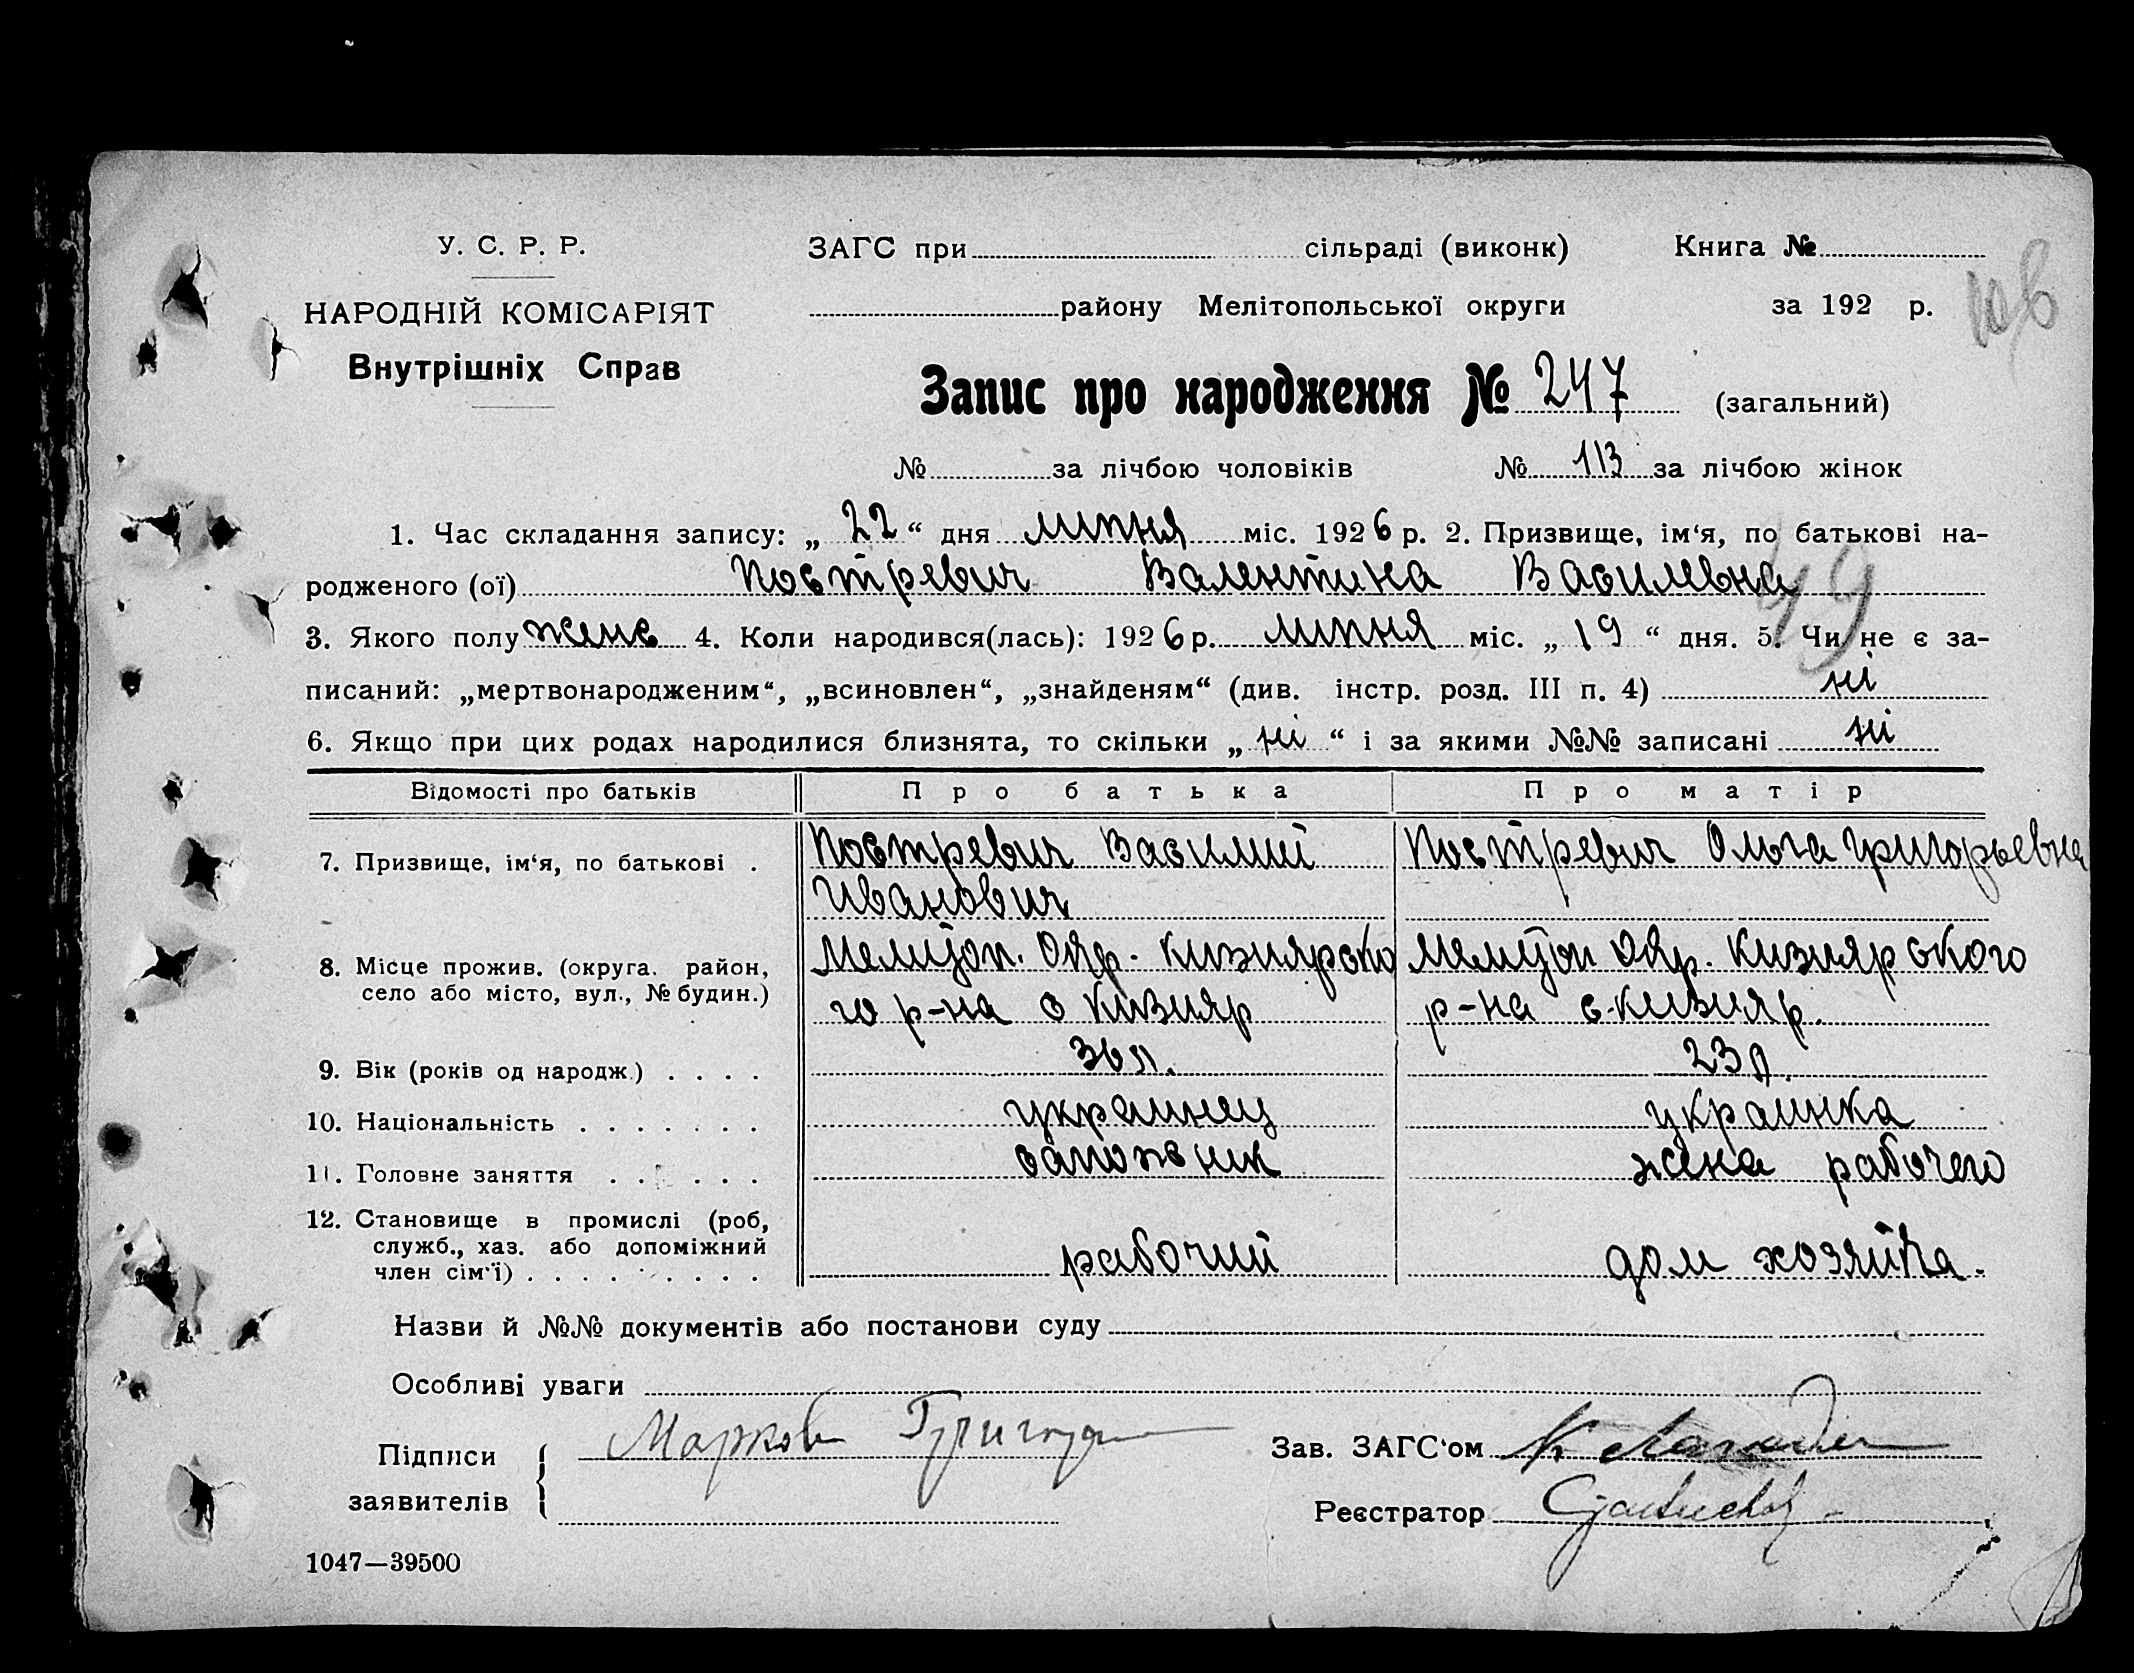 У. С. Р. Р.
НАРОДНІЙ КОМІСАРІЯТ
Внутрішніх Справ
ЗАГС при сільраді (виконк) Книга №
району Мелітопольської округи за 192 р.
Запис про народження № 247 (загальний)
№ за лічбою чоловіків № 113 за лічбою жінок
1. Час складання запису: „ 22 “ дня липня міс. 1926 р. 2. Призвище, ім‘я, по батькові на-
родженого (ої) Постревич Валентина Василевна
49
3. Якого полу жене 4. Коли народився(лась): 1926 р. липня міс. „ 19 “ дня. 5. Чи не є за-
писаний: „мертвонародженим“, „всиновлен“, „знайденям“ (див. інстр. розд. III п. 4) ні
6. Якщо при цих родах народилися близнята, то скільки „ ні “ і за якими №№ записані ні
Відомості про батьків Про батька Про матір
7. Призвище, ім‘я, по батькові . Постревич Василий Постревич Ольга Григорьевна
Иванович
8. Місце прожив. (округа, район, Мелитоп. Окр. Кизиярско Мелитоп Окр. Кизиярского
село або місто, вул., № будин.) го р-на с Кизияр р-на с. Кизияр.
9. Вік (років од народж.) . . . . 36 л. 23 л.
10. Національність . . . . . . . украинец украинка
11. Головне заняття . . . . . . сапожник жена рабочего
12. Становище в промислі (роб,
служб., хаз. або допоміжний
член сім‘ї) . . . . . . . . . рабочий дом хозяйка.
Назви й №№ документів або постанови суду
Особливі уваги
Підписи
заявителів
Марков Григор
Зав. ЗАГС‘ом
Реєстратор
1047—39500